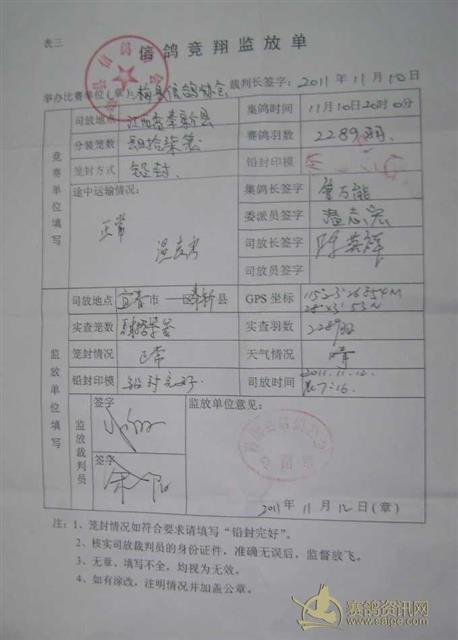 表三
信鸽竞翔监放单
举办比赛单位(章): 信鸽协会 裁判长签字: 2011年11月10日
竞赛单位填写
司放地点 江西省奉新县 集鸽时间 11月10日20时0分
分装笼数 赛鸽羽数 2289羽
笼封方式 铅封 铅封印模
途中运输情况: 正常 集鸽长签字
委派员签字
司放长签字 陈英辉
司放员签字
监放单位填写
司放地点 宜春市 奉新县 GPS坐标
实查笼数 实查羽数 2289羽
笼封情况 正常 天气情况 晴
铅封印模 铅封完好 司放时间 2011.11.12. 晨7:16
监放裁判员 签字 监放单位意见:
签字
2011年11月12日(章)
注:1、笼封情况如符合要求请填写“铅封完好”。
2、核实司放裁判员的身份证件,准确无误后,监督放飞。
3、无章、填写不全,均视为无效。
4、如有涂改,注明情况并加盖公章。
赛鸽资讯网
www.saige.com